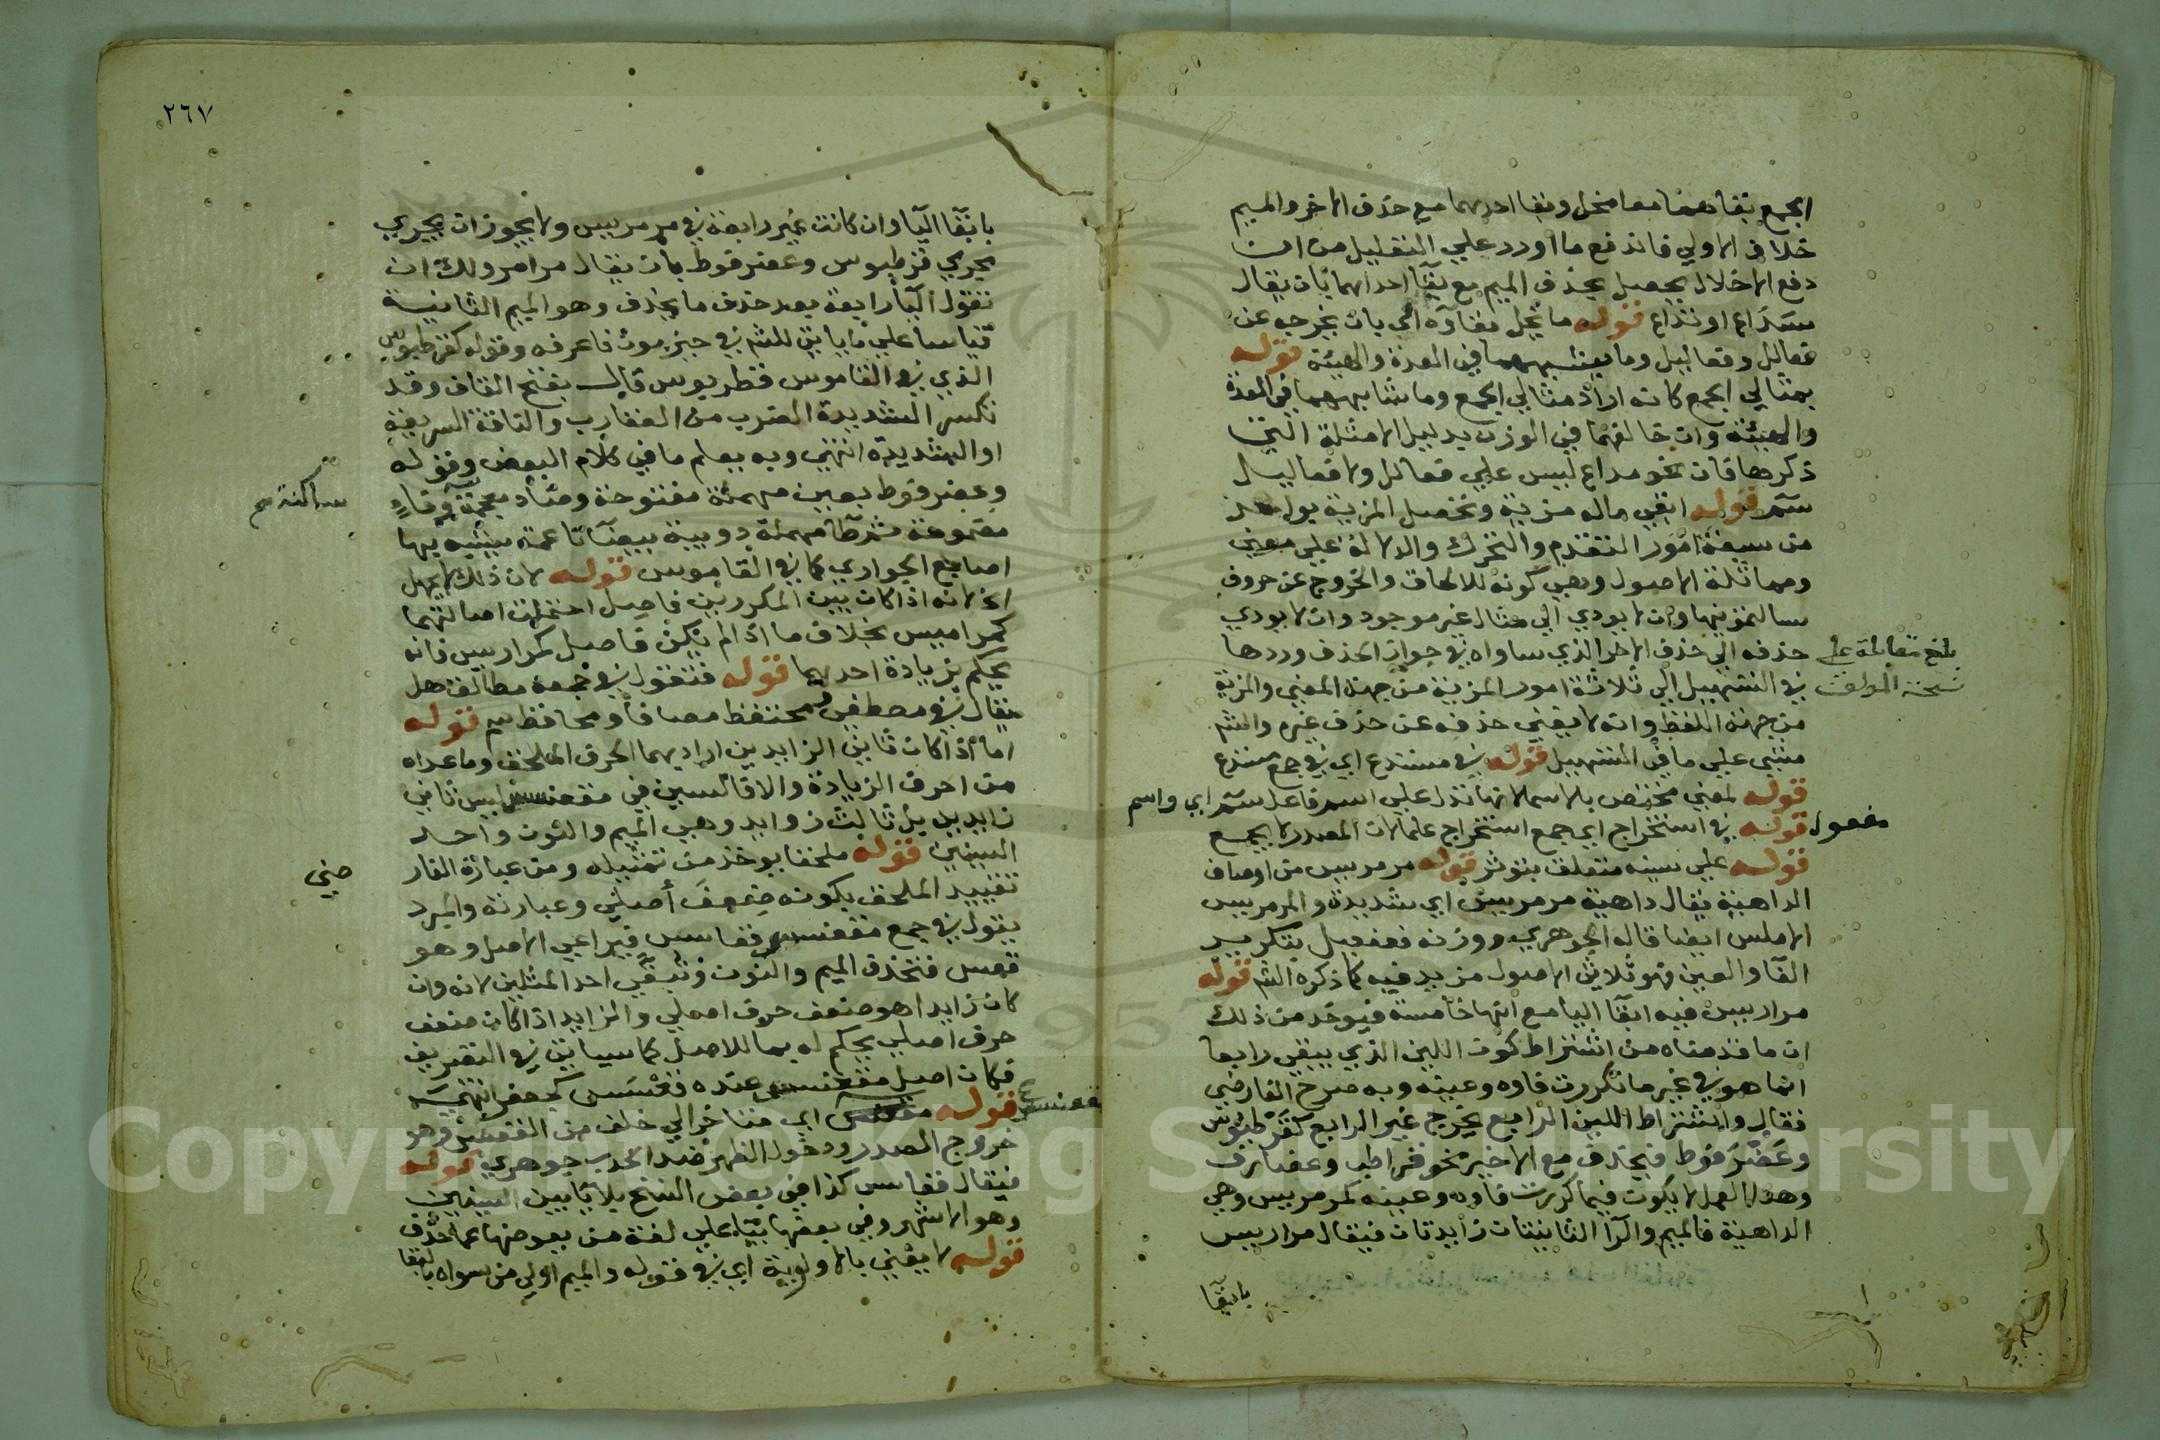 الجمع بقاهما معا مخل وبقا احدهما مع حذف الاخر والميم
خلاف الاولي فاندفع ما اورد علي التعليل من ان
دفع الاخلال يحصل بحذف الميم مع بقا احدهما بان يقال
سداع او تداع قوله ما يخل بقاوه اي بان يخرجه عن
فعالل وفعاليل وما يشبههما في العدة والهيئة قوله
بمثالي الجمع كانه اراد مثالي الجمع وما شابههما في العدة
والهيئة وان خالفهما في الوزن بدليل الامثلة التي
ذكرها فان نحو مداع ليس علي فعالل ولا فعاليل
سم قوله ابقي ماله مزية وتحصل المزية بواحد
من سبعة امور التقدم والتحرك والدلالة علي معني
ومماثلة الاصول وهي كونه للالحاق والخروج عن حروف
سالتمونيها وان لا يودي الي مثال غير موجود وان لا يودي
حذفه الي حذف الاخر الذي ساواه في جواز الحذف وردها
بلغ مقابلة علي
نسخة المولف
في التسهيل الي ثلاثة امور المزية من جهة المعني والمزية
من جهة اللفظ وانه لا يغني حذفه عن حذف غيره والشم
مبني علي ما في التسهيل قوله في مستدع اي في جمع مستدع
قوله لمعني مختص بالاسم لانها تدل علي اسم فاعل سم اي واسم
مفعول
قوله في استخراج اي جمع استخراج علما لان المصدر لا يجمع
قوله علي سينه متعلق بتوثر قوله مرمريس من اوصاف
الداهية يقال داهية مرمريس اي شديدة والمرمريس
الاملس ايضا قاله الجوهري ووزنه فعفعيل بتكرير
الفا والعين فهو ثلاثي الاصول مزيد فيه كما ذكره الشم قوله
مراريس فيه ابقا اليا مع انها خامسة فيوخذ من ذلك
ان ما قدمناه من اشتراط كون اللين الذي يبقي رابعا
انما هو في غير ما تكررت فاوه وعينه وبه صرح الفارضي
فقال واشتراط اللين الرابع يخرج غير الرابع كقرطبوس
وعضرفوط فيحذف مع الاخير نحو قراطب وعضارف
وهذا العمل لا يكون فيما كررت فاوه وعينه كمرمريس وهي
الداهية فالميم والرا الثانيتان زايدتان فيقال مراريس
بابقا
٢٦٧
بابقا اليا وان كانت غير رابعة في مرمريس ولا يجوز ان يجري
مجري قرطبوس وعضرفوط بان يقال مرامر ولك ان
تقول اليا رابعة بعد حذف ما يحذف وهو الميم الثانية
قياسا علي ما ياتي للشم في حيزبون فاعرفه وقوله كقرطبوس
الذي في القاموس قطربوس قال بفتح القاف وقد
تكسر الشديدة الضرب من العقارب والناقة السريعة
او الشديدة انتهي وبه يعلم ما في كلام البعض وقوله
وعضرفوط بعين مهملة مفتوحة وضاد معجمة وفاء
ساكنة صح
مضمومة ثم طا مهملة دويبة بيضا ناعمة يشبه بها
اصابع الجواري كما في القاموس قوله لان ذلك لا يجهل
اي لانه اذا كان بين المكررين فاصل احتملت اصالتهما
كمراميس بخلاف ما اذا لم يكن فاصل كمراريس فانه
يحكم بزيادة احدهما قوله فتقول في جمعه مطالق هل
يقال في مصطفي ومحتفظ مصاف ومحافظ سم قوله
اما اذا كان ثاني الزايدين اراد بهما الحرف الملحق وما عداه
من احرف الزيادة والا فالسين في مقعنسس ليس ثاني
زايدين بل ثالث زوايد وهي الميم والنون واحد
السينين قوله ملحقا يوخذ من تمثيله ومن عبارة الفار
ضي
تقييد الملحق بكونه ضعف اصلي وعبارته والمبرد
يقول في جمع مقعنسس قعاسس فيراعي الاصل وهو
قعس فتحذف الميم والنون وتبقي احد المثلين لانه وان
كان زايدا هو ضعف حرف اصلي والزايد اذا كان ضعف
حرف اصلي يحكم له بما للاصل كما سياتي في التصريف
فكان اصل مقعنسس عنده قعسس كجعفر انتهي
قوله مقعنسس اي متاخر الي خلف من القعس وهو
مقعنسس
خروج الصدر ودخول الظهر ضد الحدب جوهري قوله
فيقال قعاسس كذا في بعض النسخ بلا يا بين السينين
وهو الاشهر وفي بعضها بيا علي لغة من يعوضها عما حذف
قوله لا يغني بالاولوية اي في قوله والميم اولي من سواه بالبقا